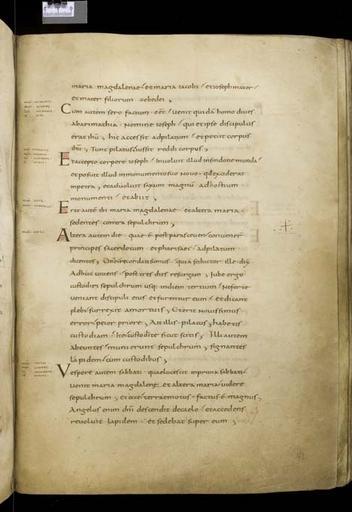 maria magdalenae · et maria iacobi · et ioseph mater ·
et mater filiorum zebedei ;
Cum autem sero factum eēt · uenit quidā homo diues
abarimathia · nomine ioseph · qui et ipse discipulus
erat ihū ; hic accessit adpilatum · et petiit corpus
ihū ; Tunc pilatus iussit reddi corpus ;
Et accepto corpore ioseph · inuoluit illud insindone munda ·
et posuit illud inmonumento suo nouo · quod exciderat
inpetra ; et aduoluit saxum magnū adhostium
monumenti · et abiit ;
Erat autē ibi maria magdalenae · et altera maria ·
sedentes · contra sepulchrum ;
Altera autem die · quae ē post parasceuen · conuenerunt
principes sacerdotum · et pharisaei · adpilatum
dicentes ; Domine
Adhuc uiuens · post tres dies resurgam ; Iube ergo
custodiri sepulchrum usq; indiem tertium · Ne forte
ueniant discipuli eius · et furentur eum · et dicant
plebi surrexit amortuis ; Et erit nouissimus
error peior priore ; Ait illis · pilatus · habetis
custodiam · ite custodite sicut scitis ; Illi autem
abeuntes · munierunt sepulchrum · signantes
lapidem · cum custodibus ;
Vespere autem sabbati · quae lucescit inprima sabbati ·
uenit maria magdalene · et altera maria uidere
sepulchrum ; et ecce terraemotus · factus ē magnus ·
Angelus enim dn̄i descendit decaelo · et accedens
reuoluit lapidem · et sedebat super eum ;